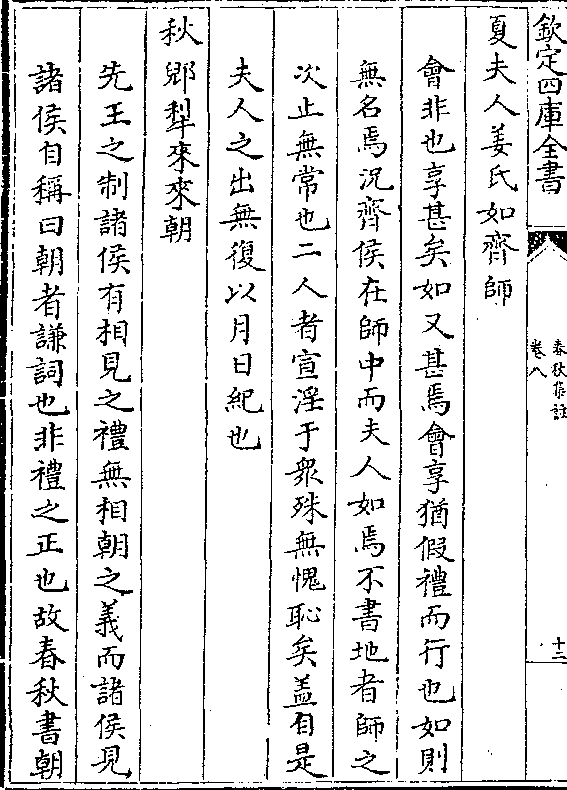 欽定四庫全書
春秋集註
卷八
十二
夏夫人姜氏如齊師
會非也享甚矣如又甚焉會享猶假禮而行也如則
無名焉況齊侯在師中而夫人如焉不書地者師之
次止無常也二人者宣淫于衆殊無愧恥矣盖自是
夫人之出無復以月日紀也
秋郷犁來來朝
先王之制諸侯有相見之禮無相朝之義而諸侯見
諸侯自稱曰朝者謙詞也非禮之正也故春秋書朝